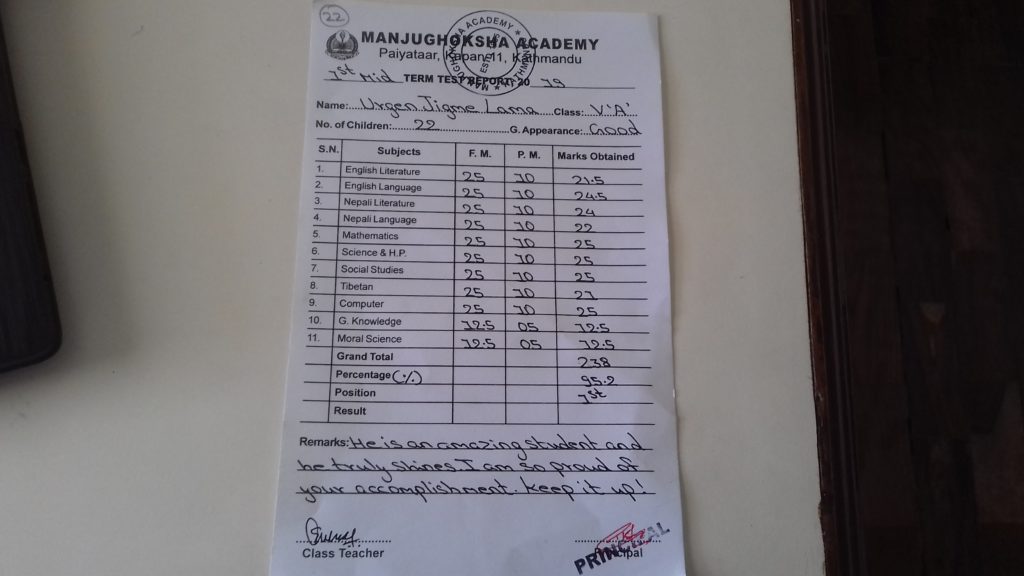 22
MANJUGHOKSHA ACADEMY
Paiyataar, Kapan 11, Kathmandu
1st Mid TERM TEST REPORT: 2019
Name: Urgen Jigme Lama Class: V 'A'
No. of Children: 22 G. Appearance: Good
S.N. Subjects F. M. P. M. Marks Obtained
1. English Literature 25 10 21.5
2. English Language 25 10 24.5
3. Nepali Literature 25 10 24
4. Nepali Language 25 10 22
5. Mathematics 25 10 25
6. Science & H.P. 25 10 25
7. Social Studies 25 10 25
8. Tibetan 25 10 21
9. Computer 25 10 25
10. G. Knowledge 12.5 05 12.5
11. Moral Science 12.5 05 12.5
Grand Total 238
Percentage (%) 95.2
Position 1st
Result
Remarks: He is an amazing student and
he truly shines. I am so proud of
your accomplishment. Keep it up!
Class Teacher Principal
PRINCIPAL